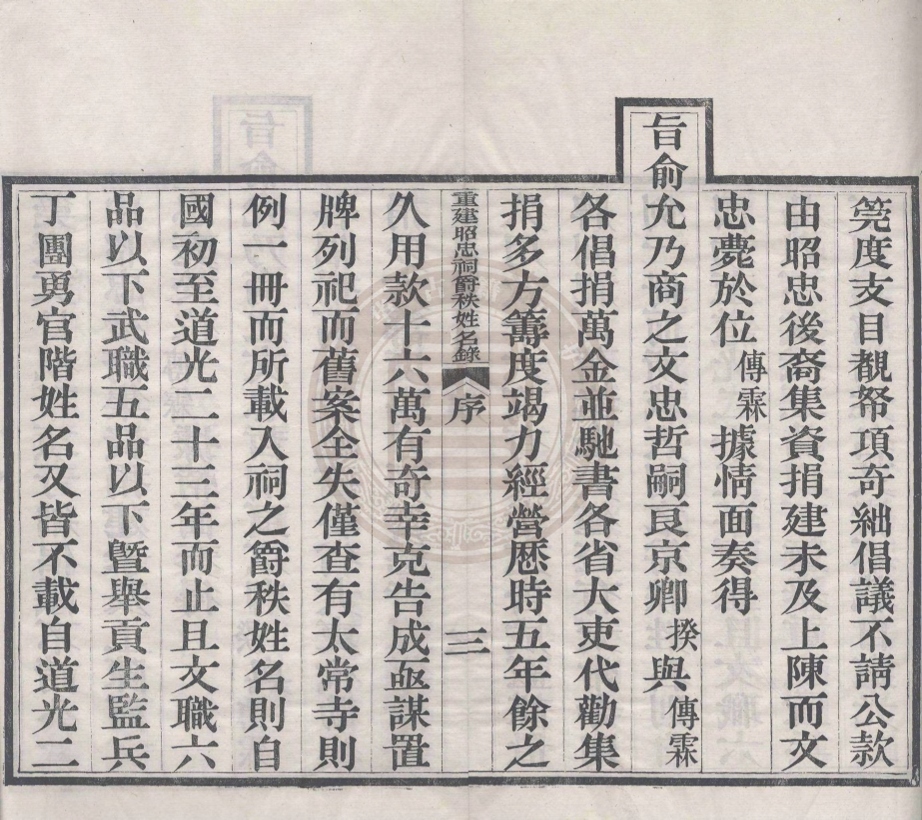 筦度支目覩帑項奇絀倡議不請公款
由昭忠後裔集資捐建未及上陳而文
忠薨於位傳霖據情面奏得
旨俞允乃商之文忠哲嗣良京卿揆與傳霖
各倡捐萬金並馳書各省大吏代勸集
捐多方籌度竭力經營歷時五年餘之
重建昭忠祠爵秩姓名錄 序 三
久用款十六萬有奇幸克告成亟謀置
牌列祀而舊案全失僅查有太常寺則
例一冊而所載入祠之爵秩姓名則自
國初至道光二十三年而止且文職六
品以下武職五品以下暨舉貢生監兵
丁團勇官階姓名又皆不載自道光二